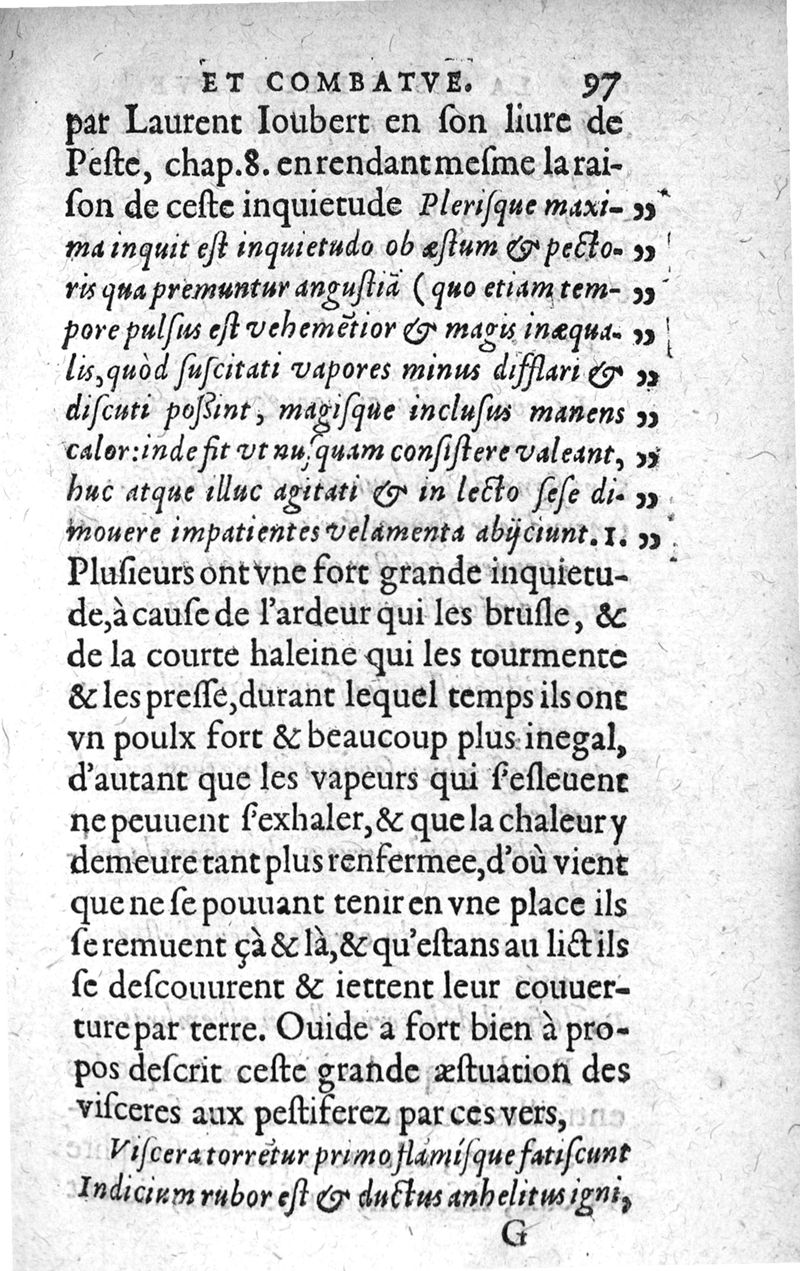 ET COMBATVE. 97
par Laurent Ioubert en ſon liure de
Peſte, chap.8. en rendant meſme la rai-
ſon de ceſte inquietude Pleriſque maxi- „
ma inquit eſt inquietudo ob æſtum & pecto- „
ris qua premuntur anguſtiã (quo etiam tem- „
pore pulſus eſt vehemẽtior & magis inæqua- „
lis, quòd ſuſcitati vapores minus difflari & „
diſcuti poſſint, magiſque incluſus manens „
calor: inde fit vt nuſquam conſiſtere valeant, „
huc atque illuc agitati & in lecto ſeſe di- „
mouere impatientes velamenta abijciunt. 1. „
Pluſieurs ont vne fort grande inquietu-
de, à cauſe de l'ardeur qui les bruſle, &
de la courte haleine qui les tourmente
& les preſſe, durant lequel temps ils ont
vn poulx fort & beaucoup plus inegal,
d'autant que les vapeurs qui ſ'eſleuent
ne peuuent ſ'exhaler, & que la chaleur y
demeure tant plus renfermee, d'où vient
que ne ſe pouuant tenir en vne place ils
ſe remuent çà & là, & qu'eſtans au lict ils
ſe deſcouurent & iettent leur couuer-
ture par terre. Ouide a fort bien à pro-
pos deſcrit ceſte grande æſtuation des
viſceres aux peſtiferez par ces vers,
Viſcera torrẽtur primo flãmíſque fatiſcunt
Indicium rubor eſt & ductus anhelitus igni,
G